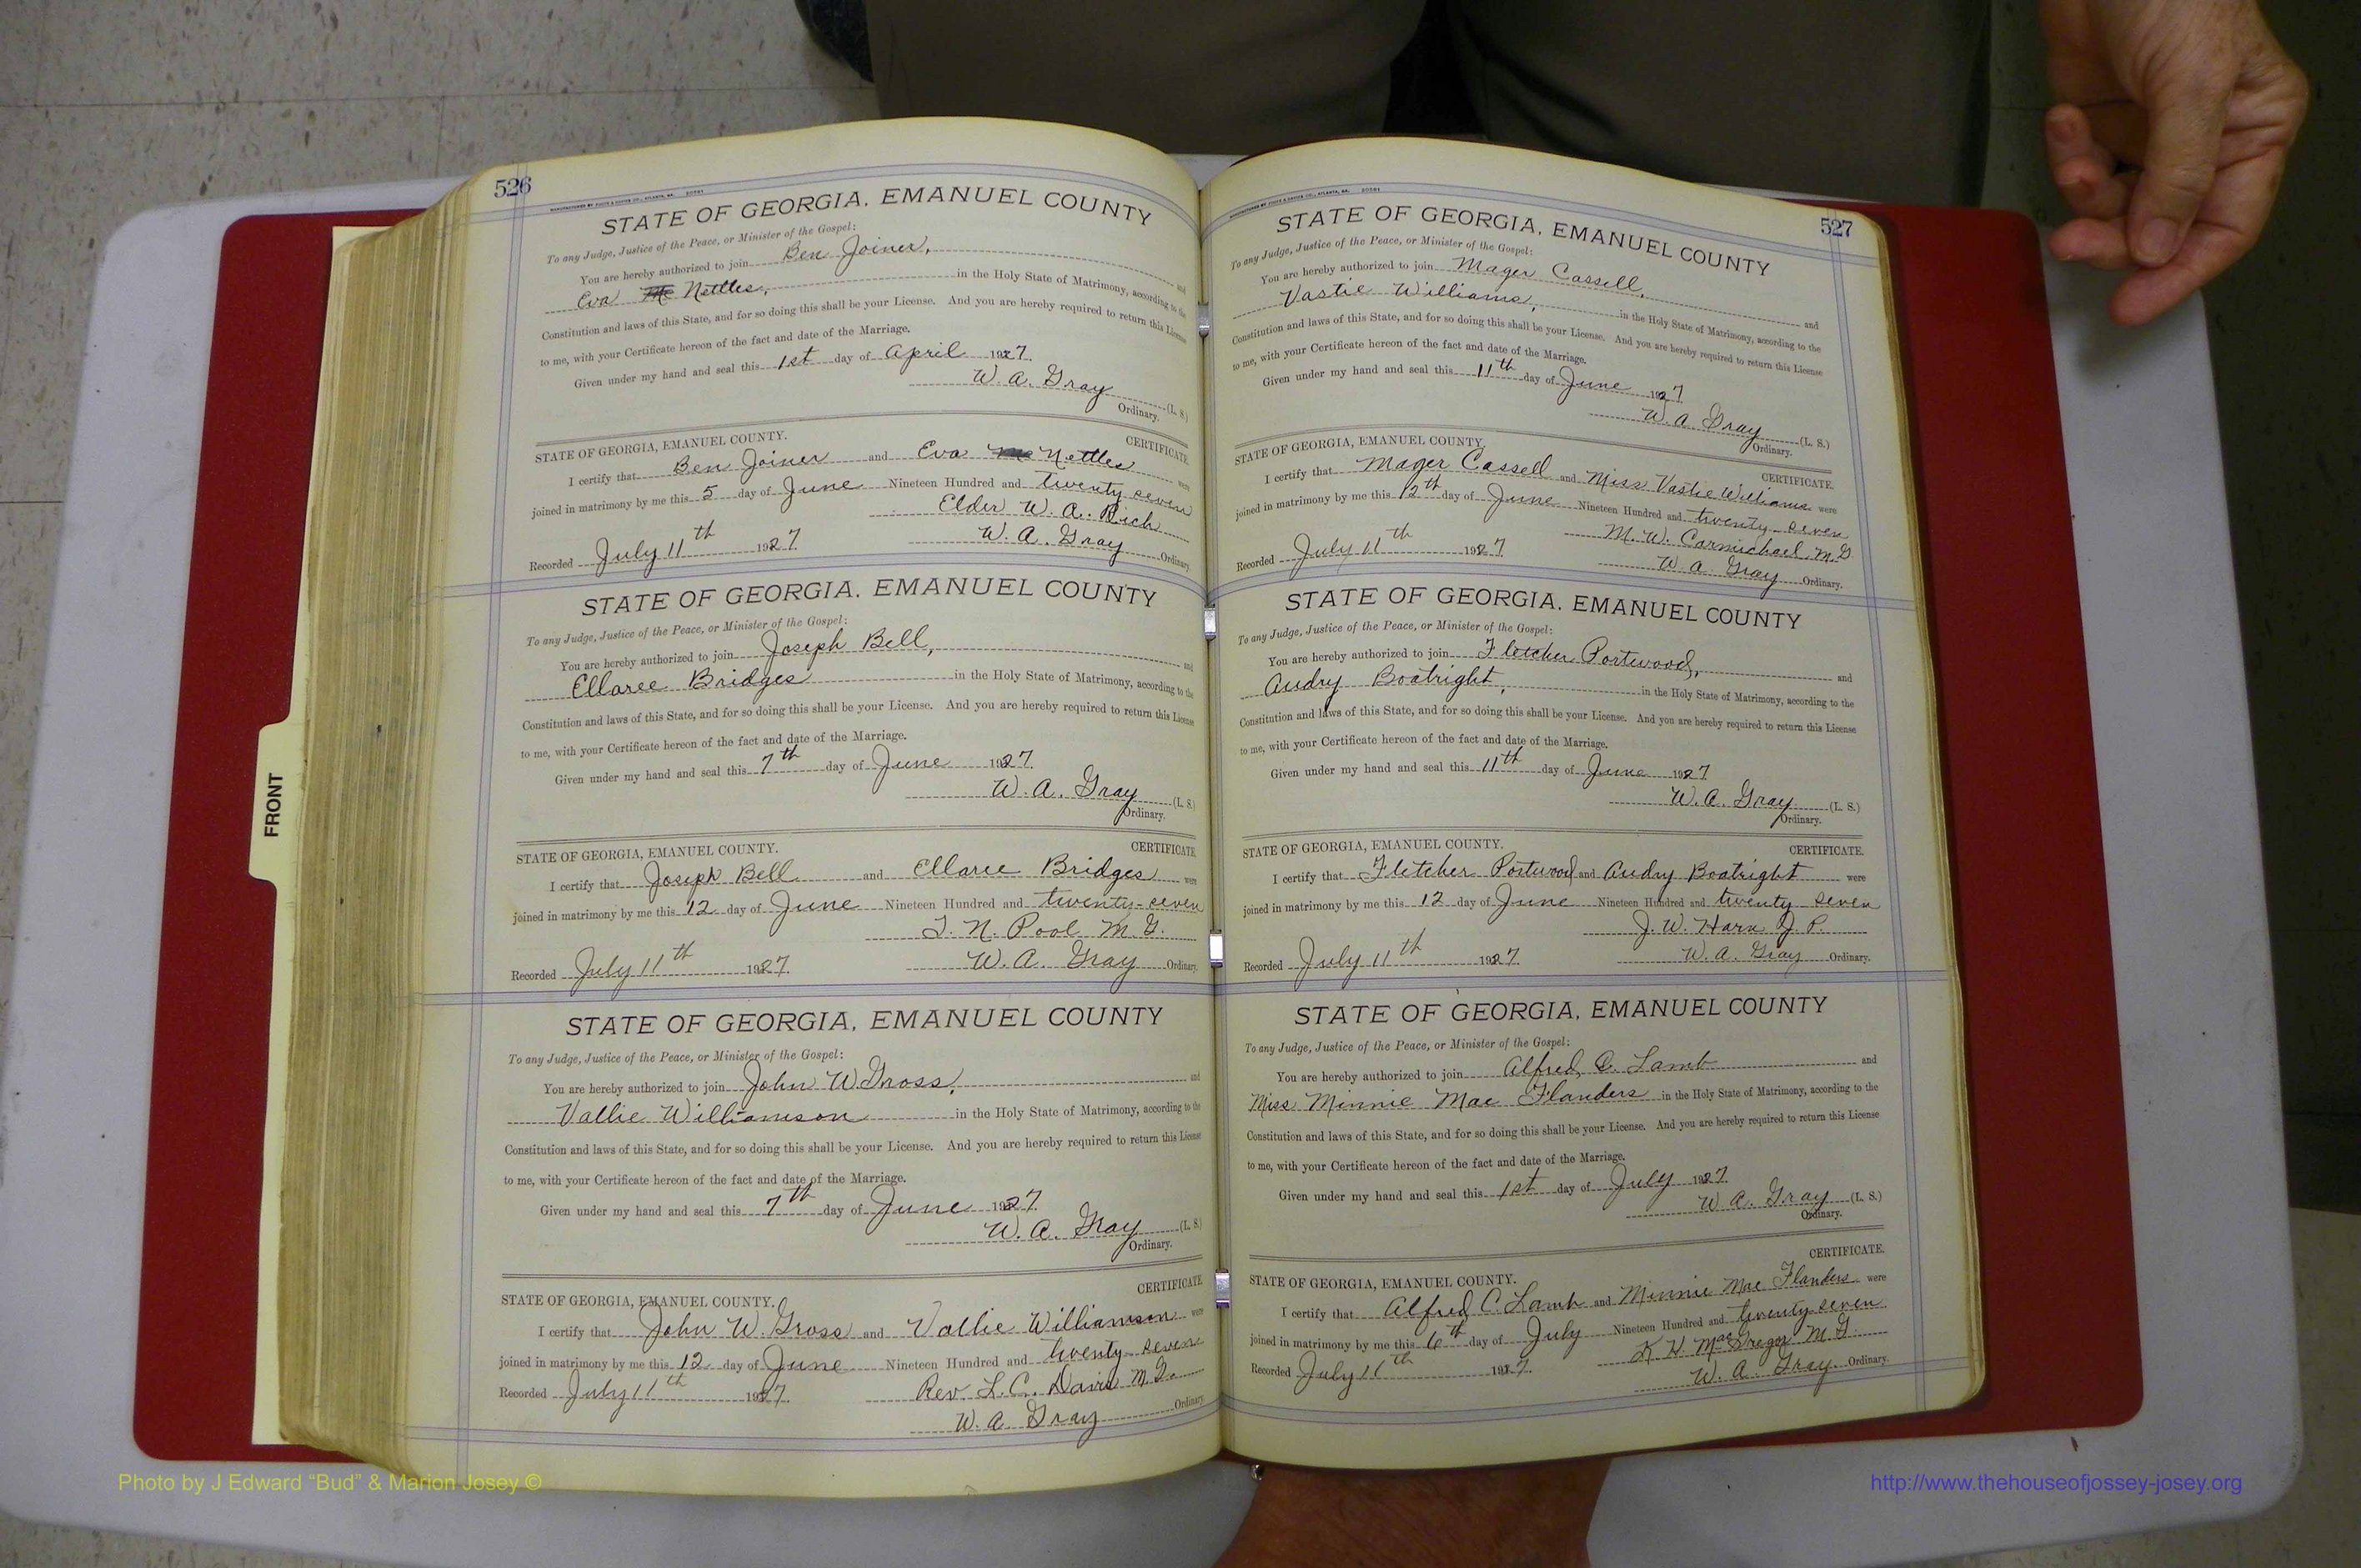 526
STATE OF GEORGIA, EMANUEL COUNTY
To any Judge, Justice of the Peace, or Minister of the Gospel:
You are hereby authorized to join Ben Joiner, and
Eva Nettles, in the Holy State of Matrimony, according to the
Constitution and laws of this State, and for so doing this shall be your License. And you are hereby required to return this License
to me, with your Certificate hereon of the fact and date of the Marriage.
Given under my hand and seal this 1st day of April 1927.
W. A. Gray (L. S.)
Ordinary.
CERTIFICATE.
STATE OF GEORGIA, EMANUEL COUNTY.
I certify that Ben Joiner and Eva Nettles were
joined in matrimony by me this 5 day of June Nineteen Hundred and twenty seven
Elder W. A. Rich
Recorded July 11th 1927. W. A. Gray Ordinary.
STATE OF GEORGIA, EMANUEL COUNTY
To any Judge, Justice of the Peace, or Minister of the Gospel:
You are hereby authorized to join Joseph Bell, and
Ellaree Bridges in the Holy State of Matrimony, according to the
Constitution and laws of this State, and for so doing this shall be your License. And you are hereby required to return this License
to me, with your Certificate hereon of the fact and date of the Marriage.
Given under my hand and seal this 7th day of June 1927.
W. A. Gray (L. S.)
Ordinary.
CERTIFICATE.
STATE OF GEORGIA, EMANUEL COUNTY.
I certify that Joseph Bell and Ellaree Bridges were
joined in matrimony by me this 12 day of June Nineteen Hundred and twenty-seven
T. N. Pool M. G.
Recorded July 11th 1927. W. A. Gray Ordinary.
STATE OF GEORGIA, EMANUEL COUNTY
To any Judge, Justice of the Peace, or Minister of the Gospel:
You are hereby authorized to join John W. Gross, and
Vallie Williamson in the Holy State of Matrimony, according to the
Constitution and laws of this State, and for so doing this shall be your License. And you are hereby required to return this License
to me, with your Certificate hereon of the fact and date of the Marriage.
Given under my hand and seal this 7th day of June 1927.
W. A. Gray (L. S.)
Ordinary.
CERTIFICATE.
STATE OF GEORGIA, EMANUEL COUNTY.
I certify that John W. Gross and Vallie Williamson were
joined in matrimony by me this 12 day of June Nineteen Hundred and twenty-seven
Recorded July 11th 1927. Rev. L. C. Davis M. G.
W. A. Gray Ordinary.
527
STATE OF GEORGIA, EMANUEL COUNTY
To any Judge, Justice of the Peace, or Minister of the Gospel:
You are hereby authorized to join Mager Cassell, and
Vastie Williams, in the Holy State of Matrimony, according to the
Constitution and laws of this State, and for so doing this shall be your License. And you are hereby required to return this License
to me, with your Certificate hereon of the fact and date of the Marriage.
Given under my hand and seal this 11th day of June 1927
W. A. Gray (L. S.)
Ordinary.
STATE OF GEORGIA, EMANUEL COUNTY.
CERTIFICATE.
I certify that Mager Cassell and Miss Vastie Williams were
joined in matrimony by me this 12th day of June Nineteen Hundred and twenty seven
M. W. Carmichael, M. G
Recorded July 11th 1927 W. A. Gray Ordinary.
STATE OF GEORGIA, EMANUEL COUNTY
To any Judge, Justice of the Peace, or Minister of the Gospel:
You are hereby authorized to join Fletcher Portwood, and
Audry Boatright, in the Holy State of Matrimony, according to the
Constitution and laws of this State, and for so doing this shall be your License. And you are hereby required to return this License
to me, with your Certificate hereon of the fact and date of the Marriage.
Given under my hand and seal this 11th day of June 1927
W. A. Gray (L. S.)
Ordinary.
STATE OF GEORGIA, EMANUEL COUNTY.
CERTIFICATE.
I certify that Fletcher Portwood and Audry Boatright were
joined in matrimony by me this 12 day of June Nineteen Hundred and twenty seven
J. W. Harn J. P.
Recorded July 11th 1927. W. A. Gray Ordinary.
STATE OF GEORGIA, EMANUEL COUNTY
To any Judge, Justice of the Peace, or Minister of the Gospel:
You are hereby authorized to join Alfred C. Lamb and
Miss Minnie Mae Flanders in the Holy State of Matrimony, according to the
Constitution and laws of this State, and for so doing this shall be your License. And you are hereby required to return this License
to me, with your Certificate hereon of the fact and date of the Marriage.
Given under my hand and seal this 1st day of July 1927.
W. A. Gray (L. S.)
Ordinary.
CERTIFICATE.
STATE OF GEORGIA, EMANUEL COUNTY.
I certify that Alfred C. Lamb and Minnie Mae Flanders were
joined in matrimony by me this 6th day of July Nineteen Hundred and twenty seven
K. H. MacGregor M. G.
Recorded July 11th 1927. W. A. Gray Ordinary.
FRONT
Photo by J Edward “Bud” & Marion Josey ©
http://www.thehouseofjossey-josey.org